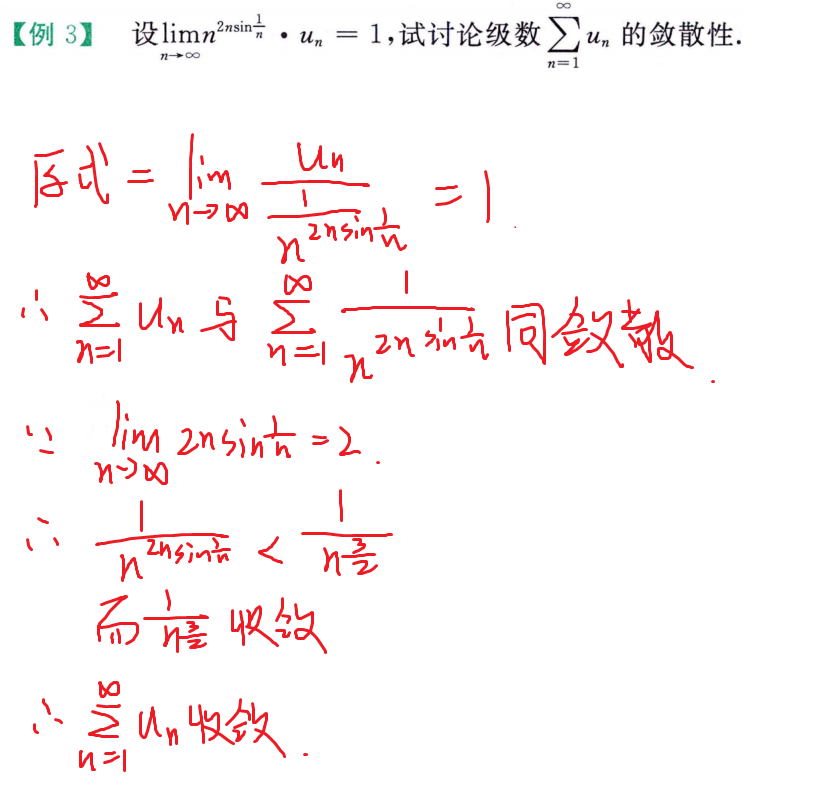 【例 3】 设$\lim\limits_{n\to\infty} n^{2n\sin\frac{1}{n}} \cdot u_n = 1$,试讨论级数$\sum\limits_{n=1}^{\infty} u_n$ 的敛散性.
原式 = $\lim\limits_{n\to\infty} \frac{u_n}{\frac{1}{n^{2n\sin\frac{1}{n}}}} = 1$.
∴ $\sum\limits_{n=1}^{\infty} u_n$ 与 $\sum\limits_{n=1}^{\infty} \frac{1}{n^{2n\sin\frac{1}{n}}}$ 同敛散.
∵ $\lim\limits_{n\to\infty} 2n\sin\frac{1}{n} = 2$.
∴ $\frac{1}{n^{2n\sin\frac{1}{n}}} < \frac{1}{n^{\frac{3}{2}}}$
而 $\frac{1}{n^{\frac{3}{2}}}$ 收敛
∴ $\sum\limits_{n=1}^{\infty} u_n$ 收敛.